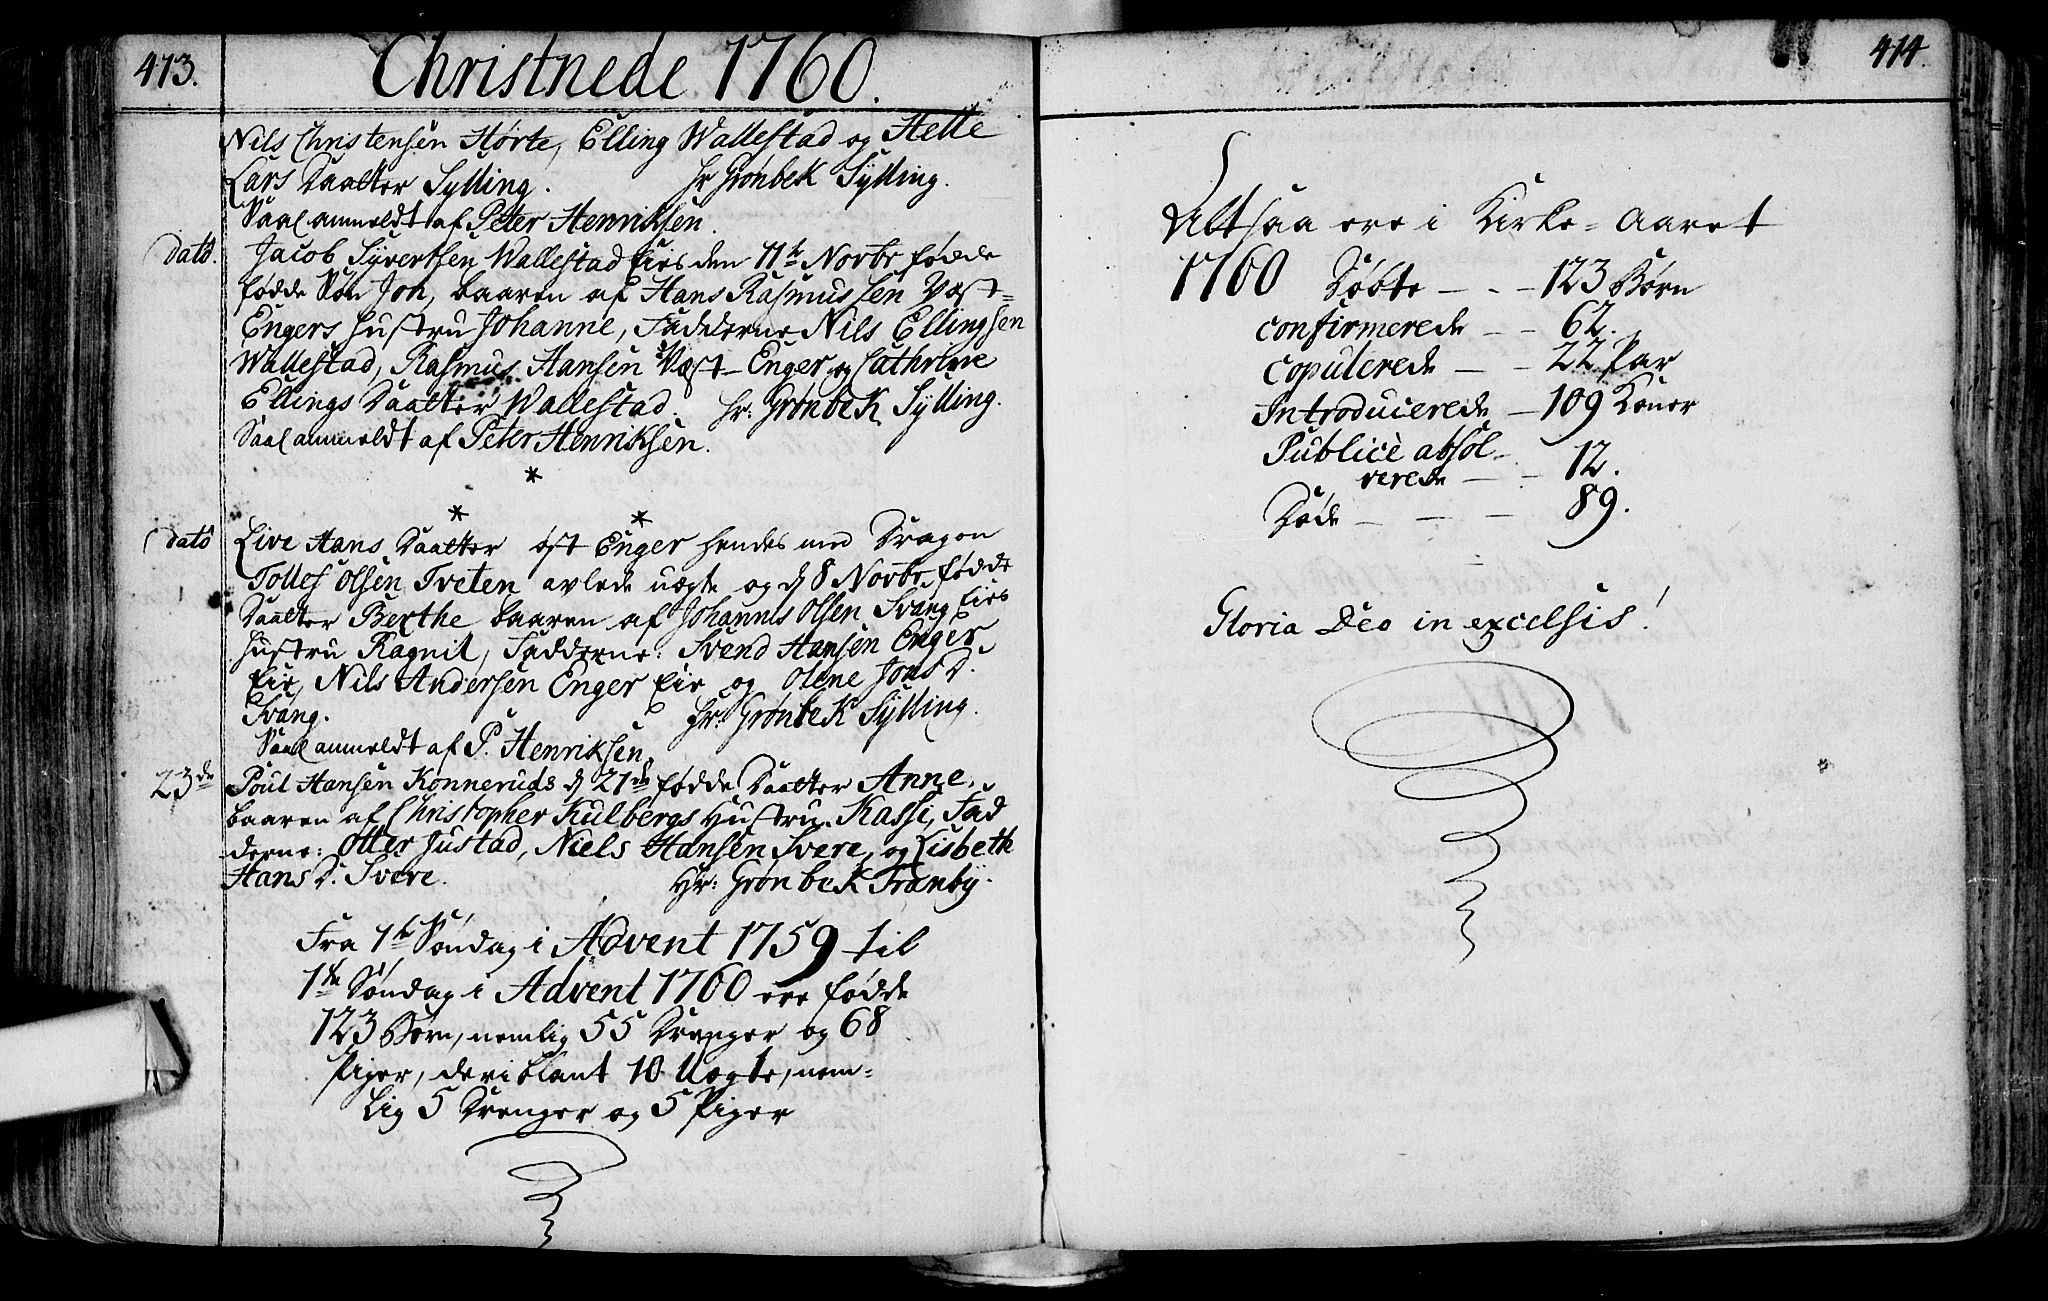 413.
Christnede 1760.
Nils Christensen Hørte, Elling Wallestad og Helle
Lars Daatter Sylling. Hr Grønbek Sylling.
Saal anmeldt af Peter Henriksen.
dato. Jacob Syvertsen Wallestad Eies den 11te Novbr fødde
fødde Søn Joh, baaren af Hans Rasmussen Væst=
Engers Hustru Johanne, Fadderne Nils Ellingsen
Wallestad, Rasmus Hansen Væst-Enger og Cathrine
Ellings Daatter Wallestad. Hr: Grønbek Sylling.
Saal anmeldt af Peter Henriksen.
*
* *
dato Live Hans Daatter øst Enger hendes med Dragon
Tollef Olsen Tveten avlede uægte og d 8 Novbr fødde
Daatter Berthe baaren af Johannes Olsen Svang Eies
Hustru Ragnil, Fadderne: Svend Hansen Enger
Eie, Nils Andersen Enger Eie og Olene Jons D.
Svang. Hr: Grønbek Sylling.
Saal anmeldt af P. Henriksen
23de Poul Hansen Konneruds d 21de fødde Daatter Anne,
baaren af Christopher Kulbergs Hustru Kassi, Fad
derne: Otter Justad, Niels Hansen Svere, og Lisbeth
Hans D. Svere. Hr: Grønbek Tranby.
Fra 1te Søndag i Advent 1759 til
1te Søndag i Advent 1760 ere fødde
123 Børn, nemlig 55 Drenger og 68
Piger, deriblant 10 Uægte, nem=
lig 5 Drenger og 5 Piger
414.
Altsaa ere i Kirke=Aaret
1760 Døbte - - - 123 Børn
confirmerede - - 62.
copulerede - - 22 Par
Introducerede - 109 Koner
Publicè absol-
verede - - 12.
Døde - - - 89.
Gloria Deo in excelsis!